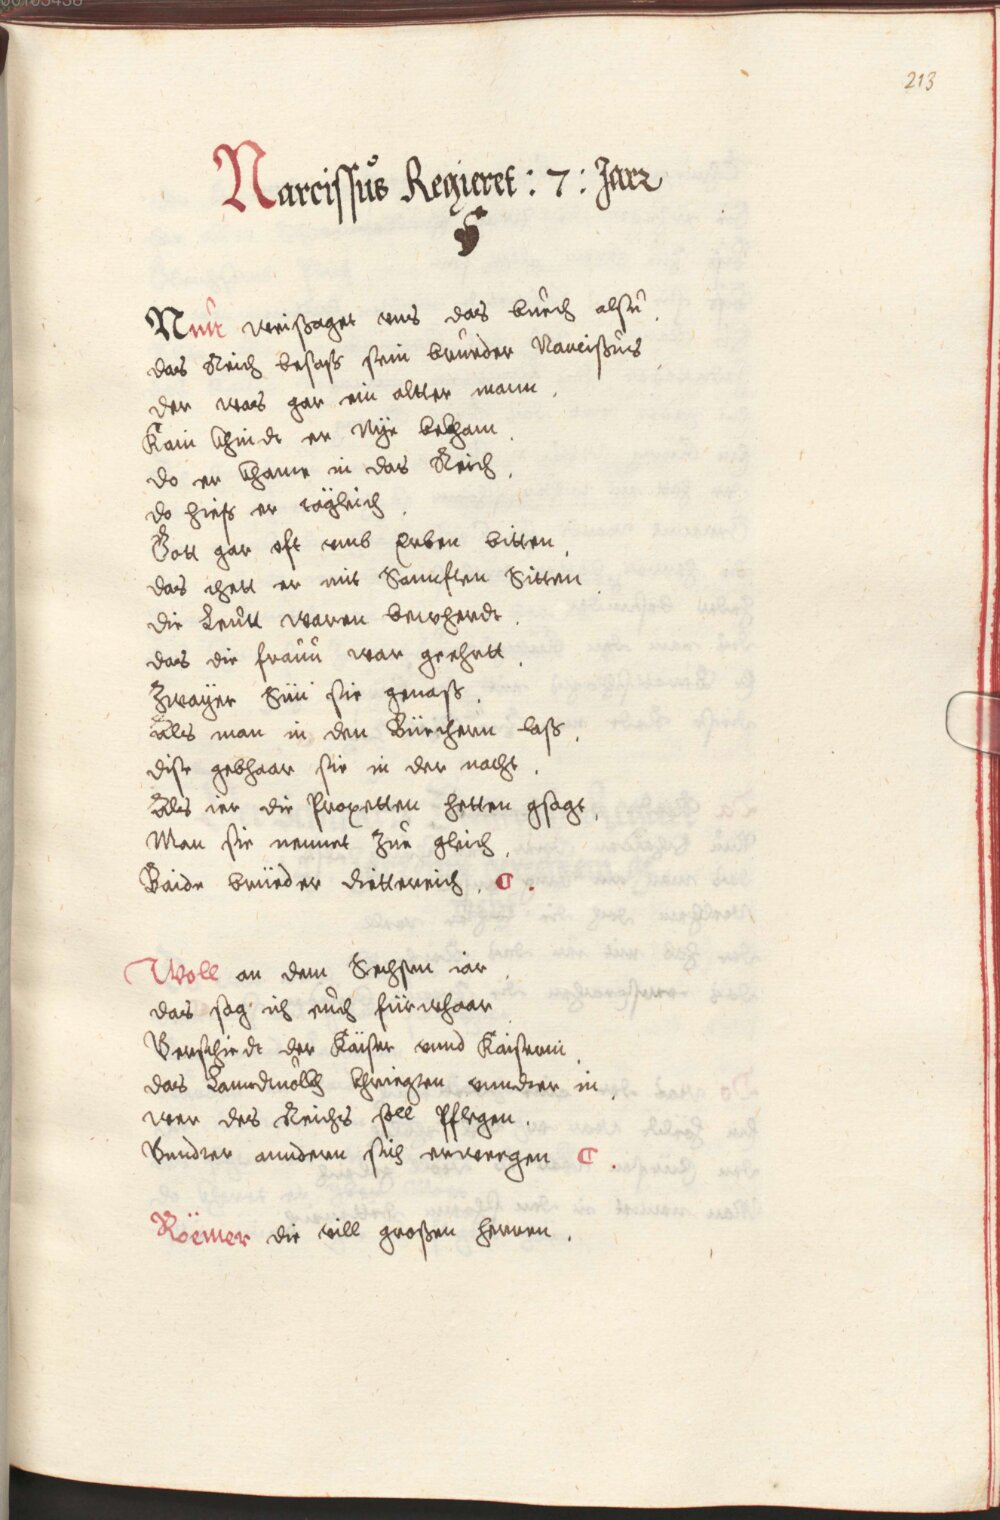 213
Narcissus Regieret : 7 : Jarr
Nun weissaget vns das buech alsu
das Reich besass sein brueder Narcissus
der was gar ein altter mann.
Kain khindt er Nye bekham.
do er khame in das Reich,
do hiess er tägleich.
Gott gar oft vmb Erben bitten,
das thett er mit Sannften Sitten
die Leütt waren bewherdt.
das die frauu war geehrtt.
Zwayer Sün sie genass.
Als man in den Büechern lass,
dise gebhaar sie in der nacht.
Als ier die Propetten hetten gsagt,
Man sie nennet Zue gleich,
Baide brüeder dietterich.
Woll an dem Sechsten iar,
das sag ich euch fürwhaar
Verschiedt der Kaiser vnnd Kaiserin,
das Lanndtuolkh khriegten vnndter in,
wer des Reichs soll Pflegen.
Vnndter anndern sich erwergen
Röemer die vill grossen herren.